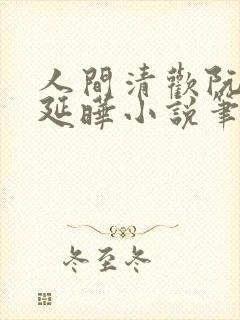 人間清歡阮
延曄小說筆
冬至冬